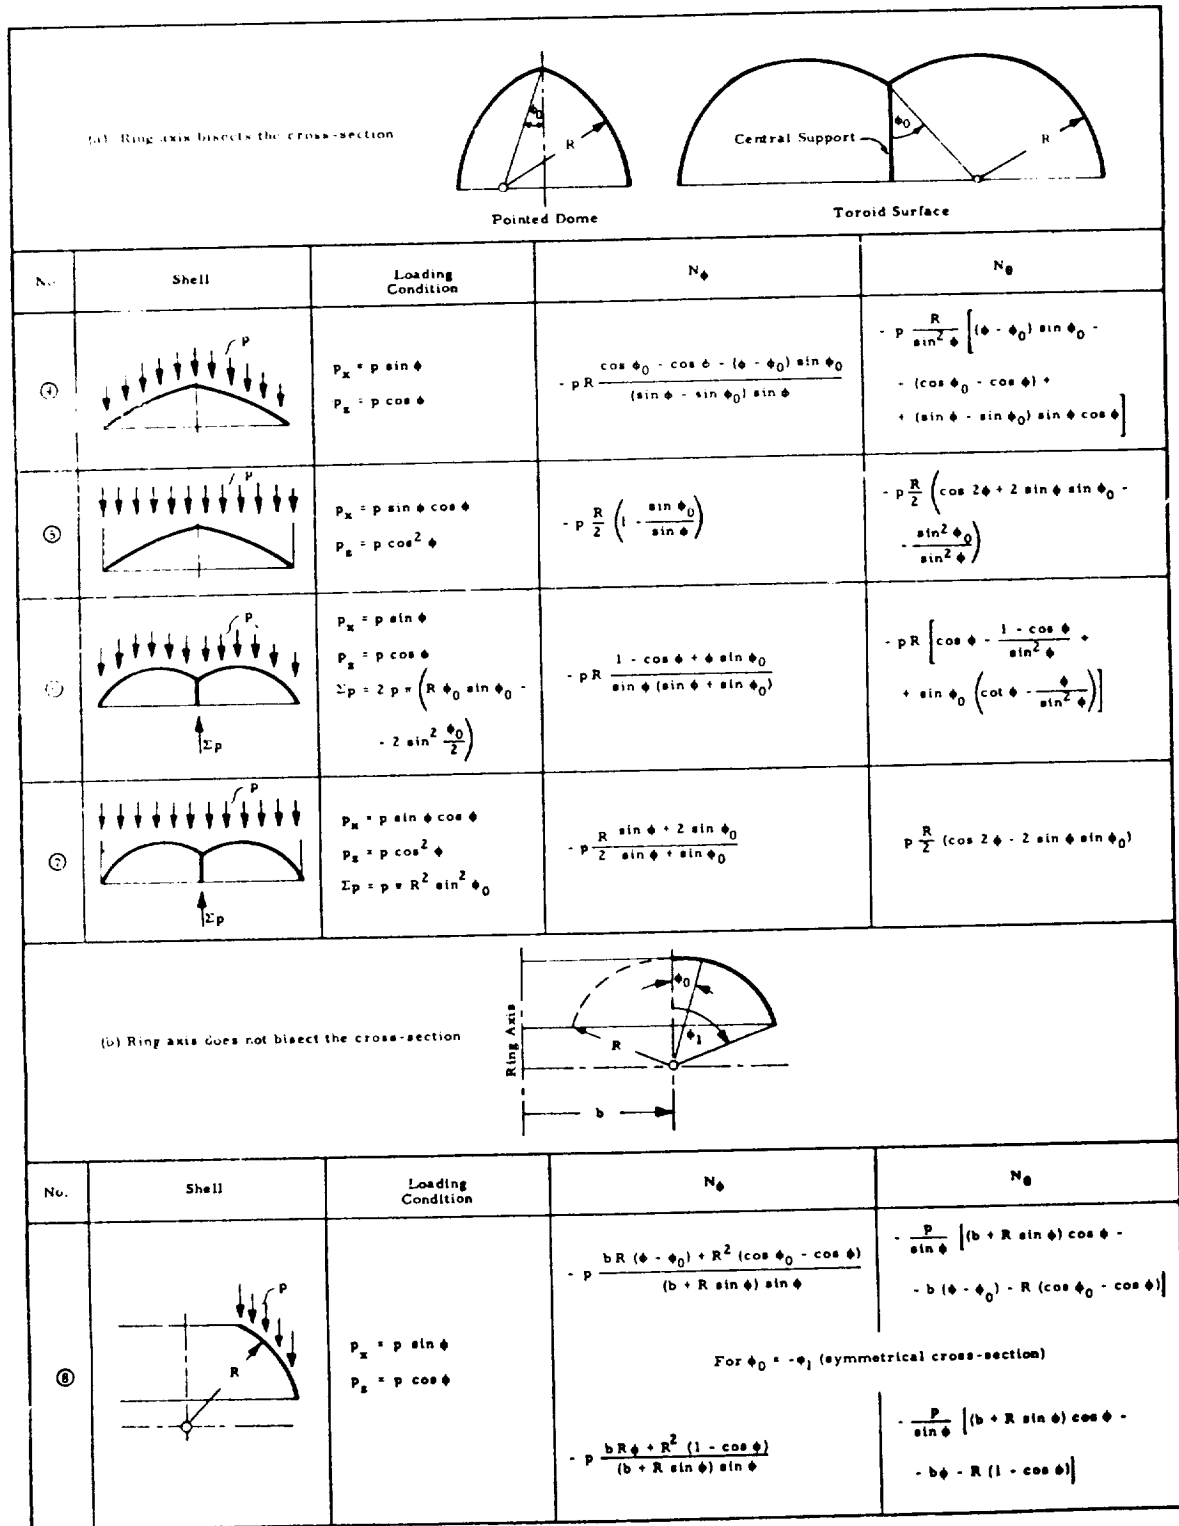 (a) Ring axis bisects the cross-section
ϕ0
R
Central Support
ϕ0
R
Pointed Dome
Toroid Surface
No.
Shell
Loading
Condition
Nϕ
Nθ
④
p
p_x = p sin ϕ
p_z = p cos ϕ
- p R (cos ϕ0 - cos ϕ - (ϕ - ϕ0) sin ϕ0) / ((sin ϕ - sin ϕ0) sin ϕ)
- p R / sin² ϕ [(ϕ - ϕ0) sin ϕ0 -
- (cos ϕ0 - cos ϕ) +
+ (sin ϕ - sin ϕ0) sin ϕ cos ϕ]
⑤
p
p_x = p sin ϕ cos ϕ
p_z = p cos² ϕ
- p R/2 (1 - sin ϕ0 / sin ϕ)
- p R/2 (cos 2ϕ + 2 sin ϕ sin ϕ0 -
- sin² ϕ0 / sin² ϕ)
p
Σp
p_x = p sin ϕ
p_z = p cos ϕ
Σp = 2 p π (R ϕ0 sin ϕ0 -
- 2 sin² ϕ0/2)
- p R (1 - cos ϕ + ϕ sin ϕ0) / (sin ϕ (sin ϕ + sin ϕ0))
- p R [cos ϕ - (1 - cos ϕ) / sin² ϕ +
+ sin ϕ0 (cot ϕ - ϕ / sin² ϕ)]
⑦
p
Σp
p_x = p sin ϕ cos ϕ
p_z = p cos² ϕ
Σp = p π R² sin² ϕ0
- p R/2 (sin ϕ + 2 sin ϕ0) / (sin ϕ + sin ϕ0)
p R/2 (cos 2 ϕ - 2 sin ϕ sin ϕ0)
(b) Ring axis does not bisect the cross-section
Ring Axis
ϕ0
ϕ1
R
b
No.
Shell
Loading
Condition
Nϕ
Nθ
⑧
p
R
p_x = p sin ϕ
p_z = p cos ϕ
- p (b R (ϕ - ϕ0) + R² (cos ϕ0 - cos ϕ)) / ((b + R sin ϕ) sin ϕ)
- p / sin ϕ [(b + R sin ϕ) cos ϕ -
- b (ϕ - ϕ0) - R (cos ϕ0 - cos ϕ)]
For ϕ0 = -ϕ1 (symmetrical cross-section)
- p (b R ϕ + R² (1 - cos ϕ)) / ((b + R sin ϕ) sin ϕ)
- p / sin ϕ [(b + R sin ϕ) cos ϕ -
- bϕ - R (1 - cos ϕ)]